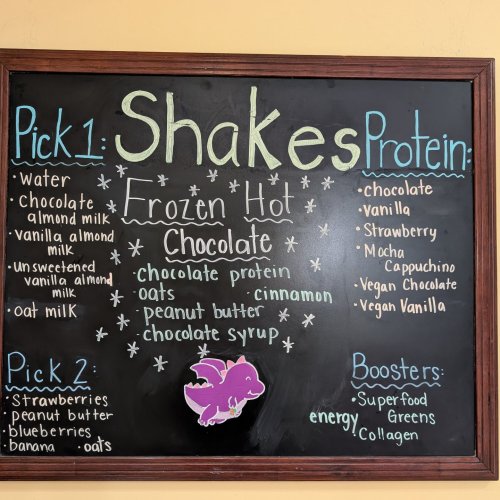 Shakes
Pick 1:
• Water
• Chocolate
almond milk
• Vanilla almond
milk
• unsweetened
vanilla almond
milk
• oat milk
Pick 2:
• Strawberries
• peanut butter
• blueberries
• banana • oats
Frozen Hot
Chocolate
• chocolate protein
• oats • cinnamon
• peanut butter
• chocolate syrup
Protein:
• chocolate
• Vanilla
• Strawberry
• Mocha
Cappuchino
• Vegan Chocolate
• Vegan Vanilla
Boosters:
• Superfood
Greens
energy
• Collagen